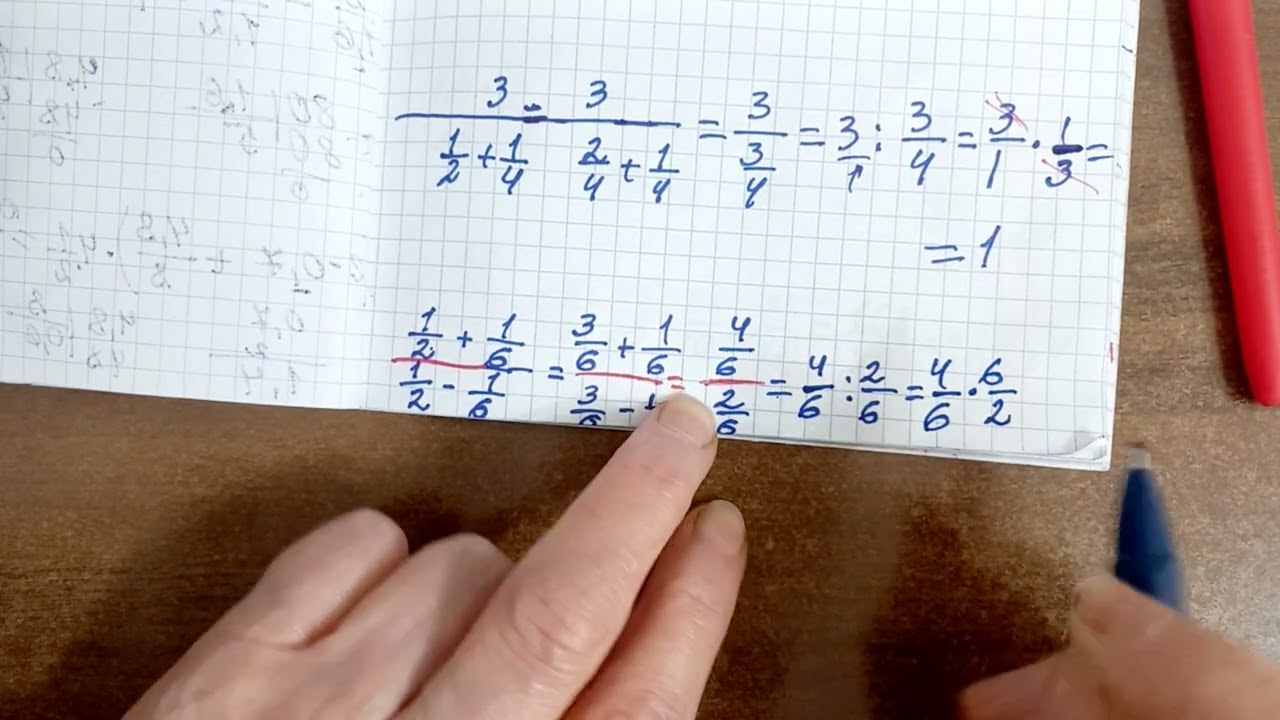 3/(1/2 + 1/4) = 3/(2/4 + 1/4) = 3/(3/4) = 3/1 : 3/4 = 3/1 · 1/3 =
= 1
(1/2 + 1/6)/(1/2 - 1/6) = (3/6 + 1/6)/(3/6 - 1 = (4/6)/(2/6) = 4/6 : 2/6 = 4/6 · 6/2